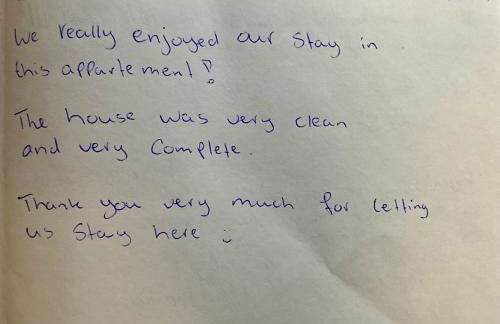 We really enjoyed our stay in
this appartement!
The house was very clean
and very complete.
Thank you very much for letting
us stay here :)